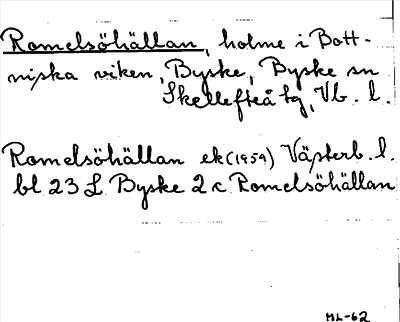 Romelsöhällan, holme i Bott-
niska viken, Byske, Byske sn
Skellefteå tg, Vb. l.
Romelsöhällan ek (1959) Västerb. l.
bl 23 L Byske 2 c Romelsöhällan
ML-62